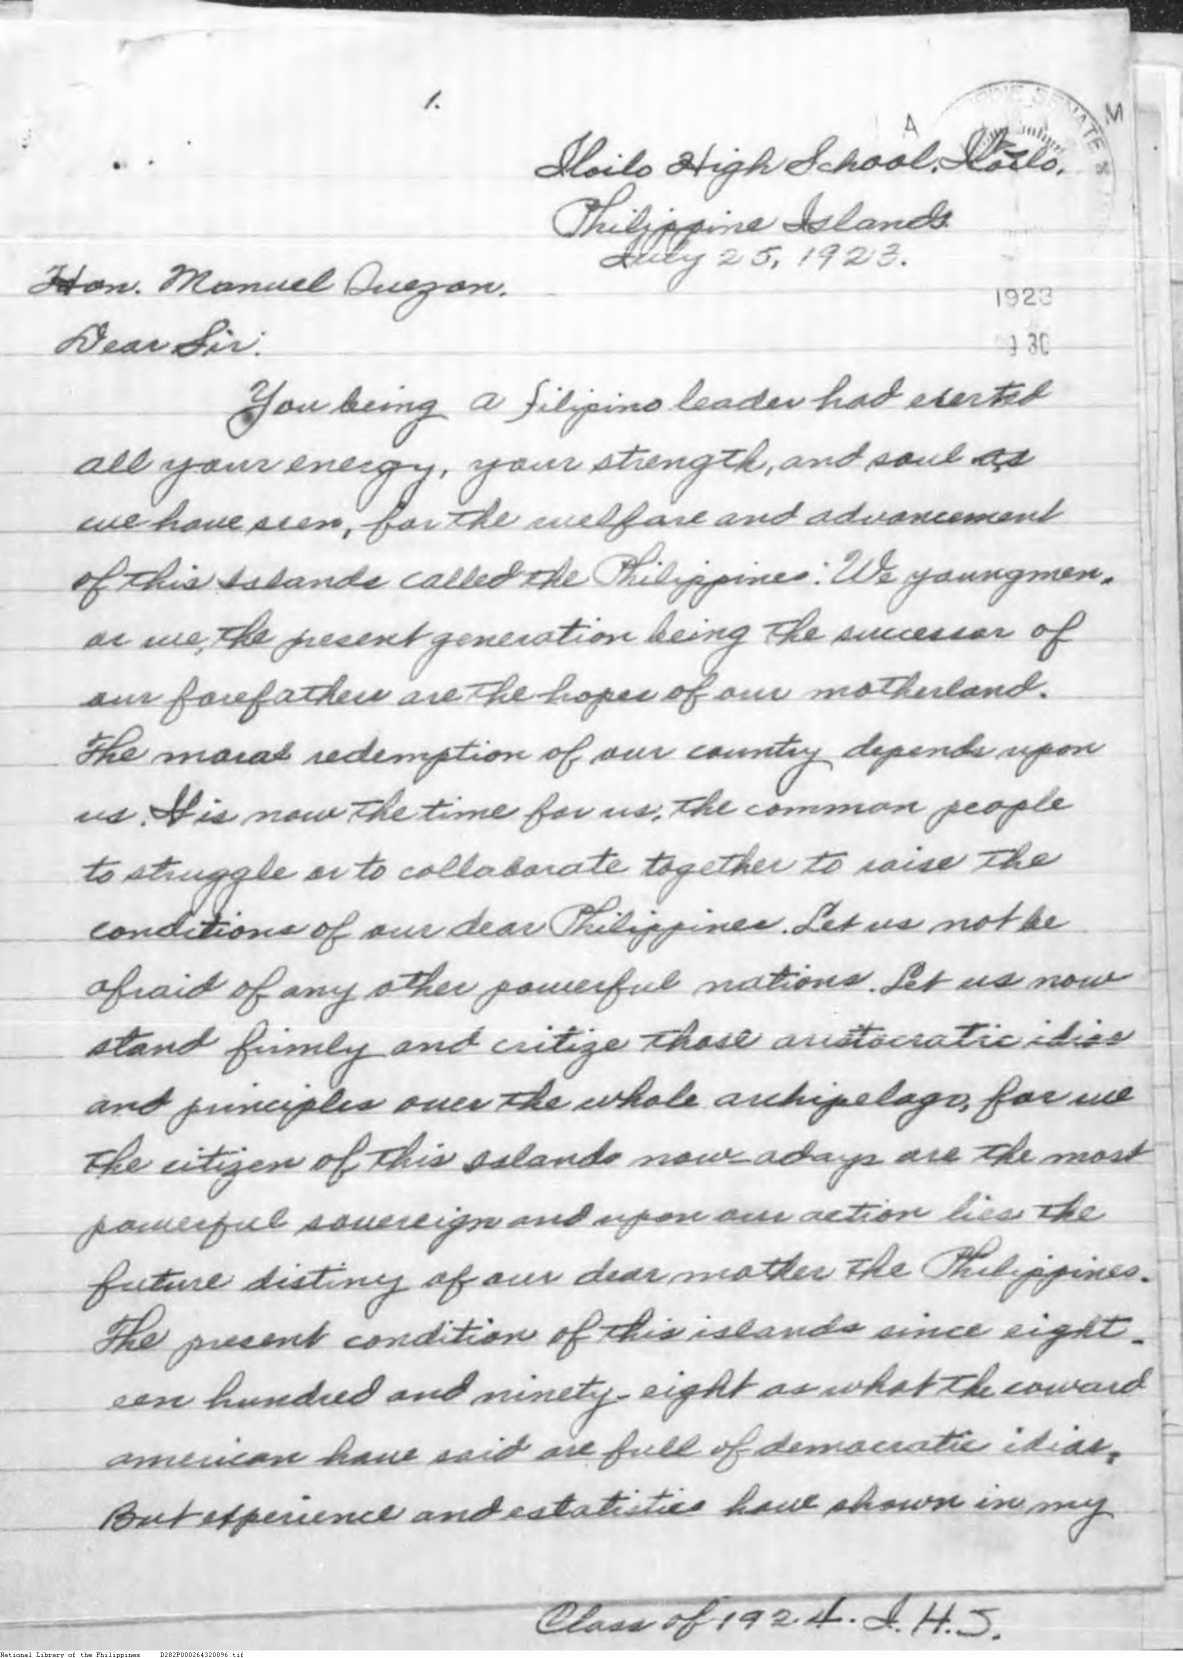 1.
PINE SENATE
A M
Iloilo High School, Iloilo,
Philippine Islands
July 25, 1923.
Hon. Manuel Quezon.
1923
Dear Sir:
30
You being a filipino leader had exerted
all your energy, your strength, and soul as
we have seen, for the welfare and advancement
of this Islands called the Philippines. We youngmen,
or we, the present generation being the successor of
our forefathers are the hopes of our motherland.
The moral redemption of our country depends upon
us. It is now the time for us, the common people
to struggle or to collaborate together to raise the
conditions of our dear Philippines. Let us not be
afraid of any other powerful nations. Let us now
stand firmly and critize those aristocratic idias
and principles over the whole archipelago, for we
the citizen of this Islands now-adays are the most
powerful sovereign and upon our action lies the
future distiny of our dear mother the Philippines.
The present condition of this islands since eight-
een hundred and ninety-eight as what the coward
american have said are full of democratic idias,
But experience and estatistics have shown in my
Class of 1924. I.H.S.
National Library of the Philippines D282P000264320896.tif